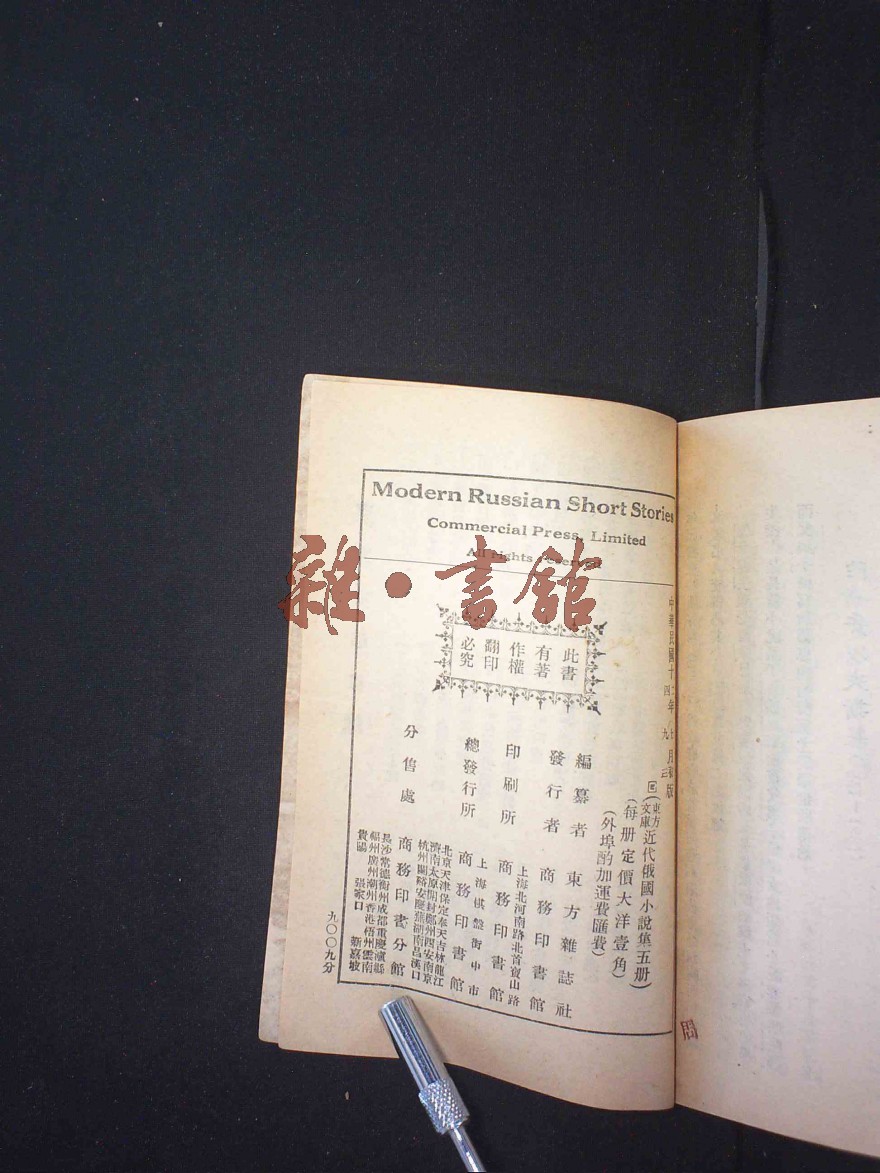 Modern Russian Short Stories
Commercial Press, Limited
All rights reserved
雜·書館
此書
有著
作權
翻印
必究
中華民國十二年
四年九
月初版
(東方文庫)近代俄國小說集五册)
(每册定價大洋壹角)
(外埠酌加運費匯費)
編纂者 東方雜誌社
發行者 商務印書館
印刷所 上海北河南路北首寶山路 商務印書館
總發行所 上海棋盤街中市 商務印書館
分售處 北京天津保定奉天吉林龍江
濟南太原開封鄭州西安南京
杭州蘭谿安慶蕪湖南昌漢口
商務印書分館
長沙常德衡州成都重慶瀘縣
福州廣州潮州香港梧州雲南
貴陽 張家口 新嘉坡
九〇〇九分